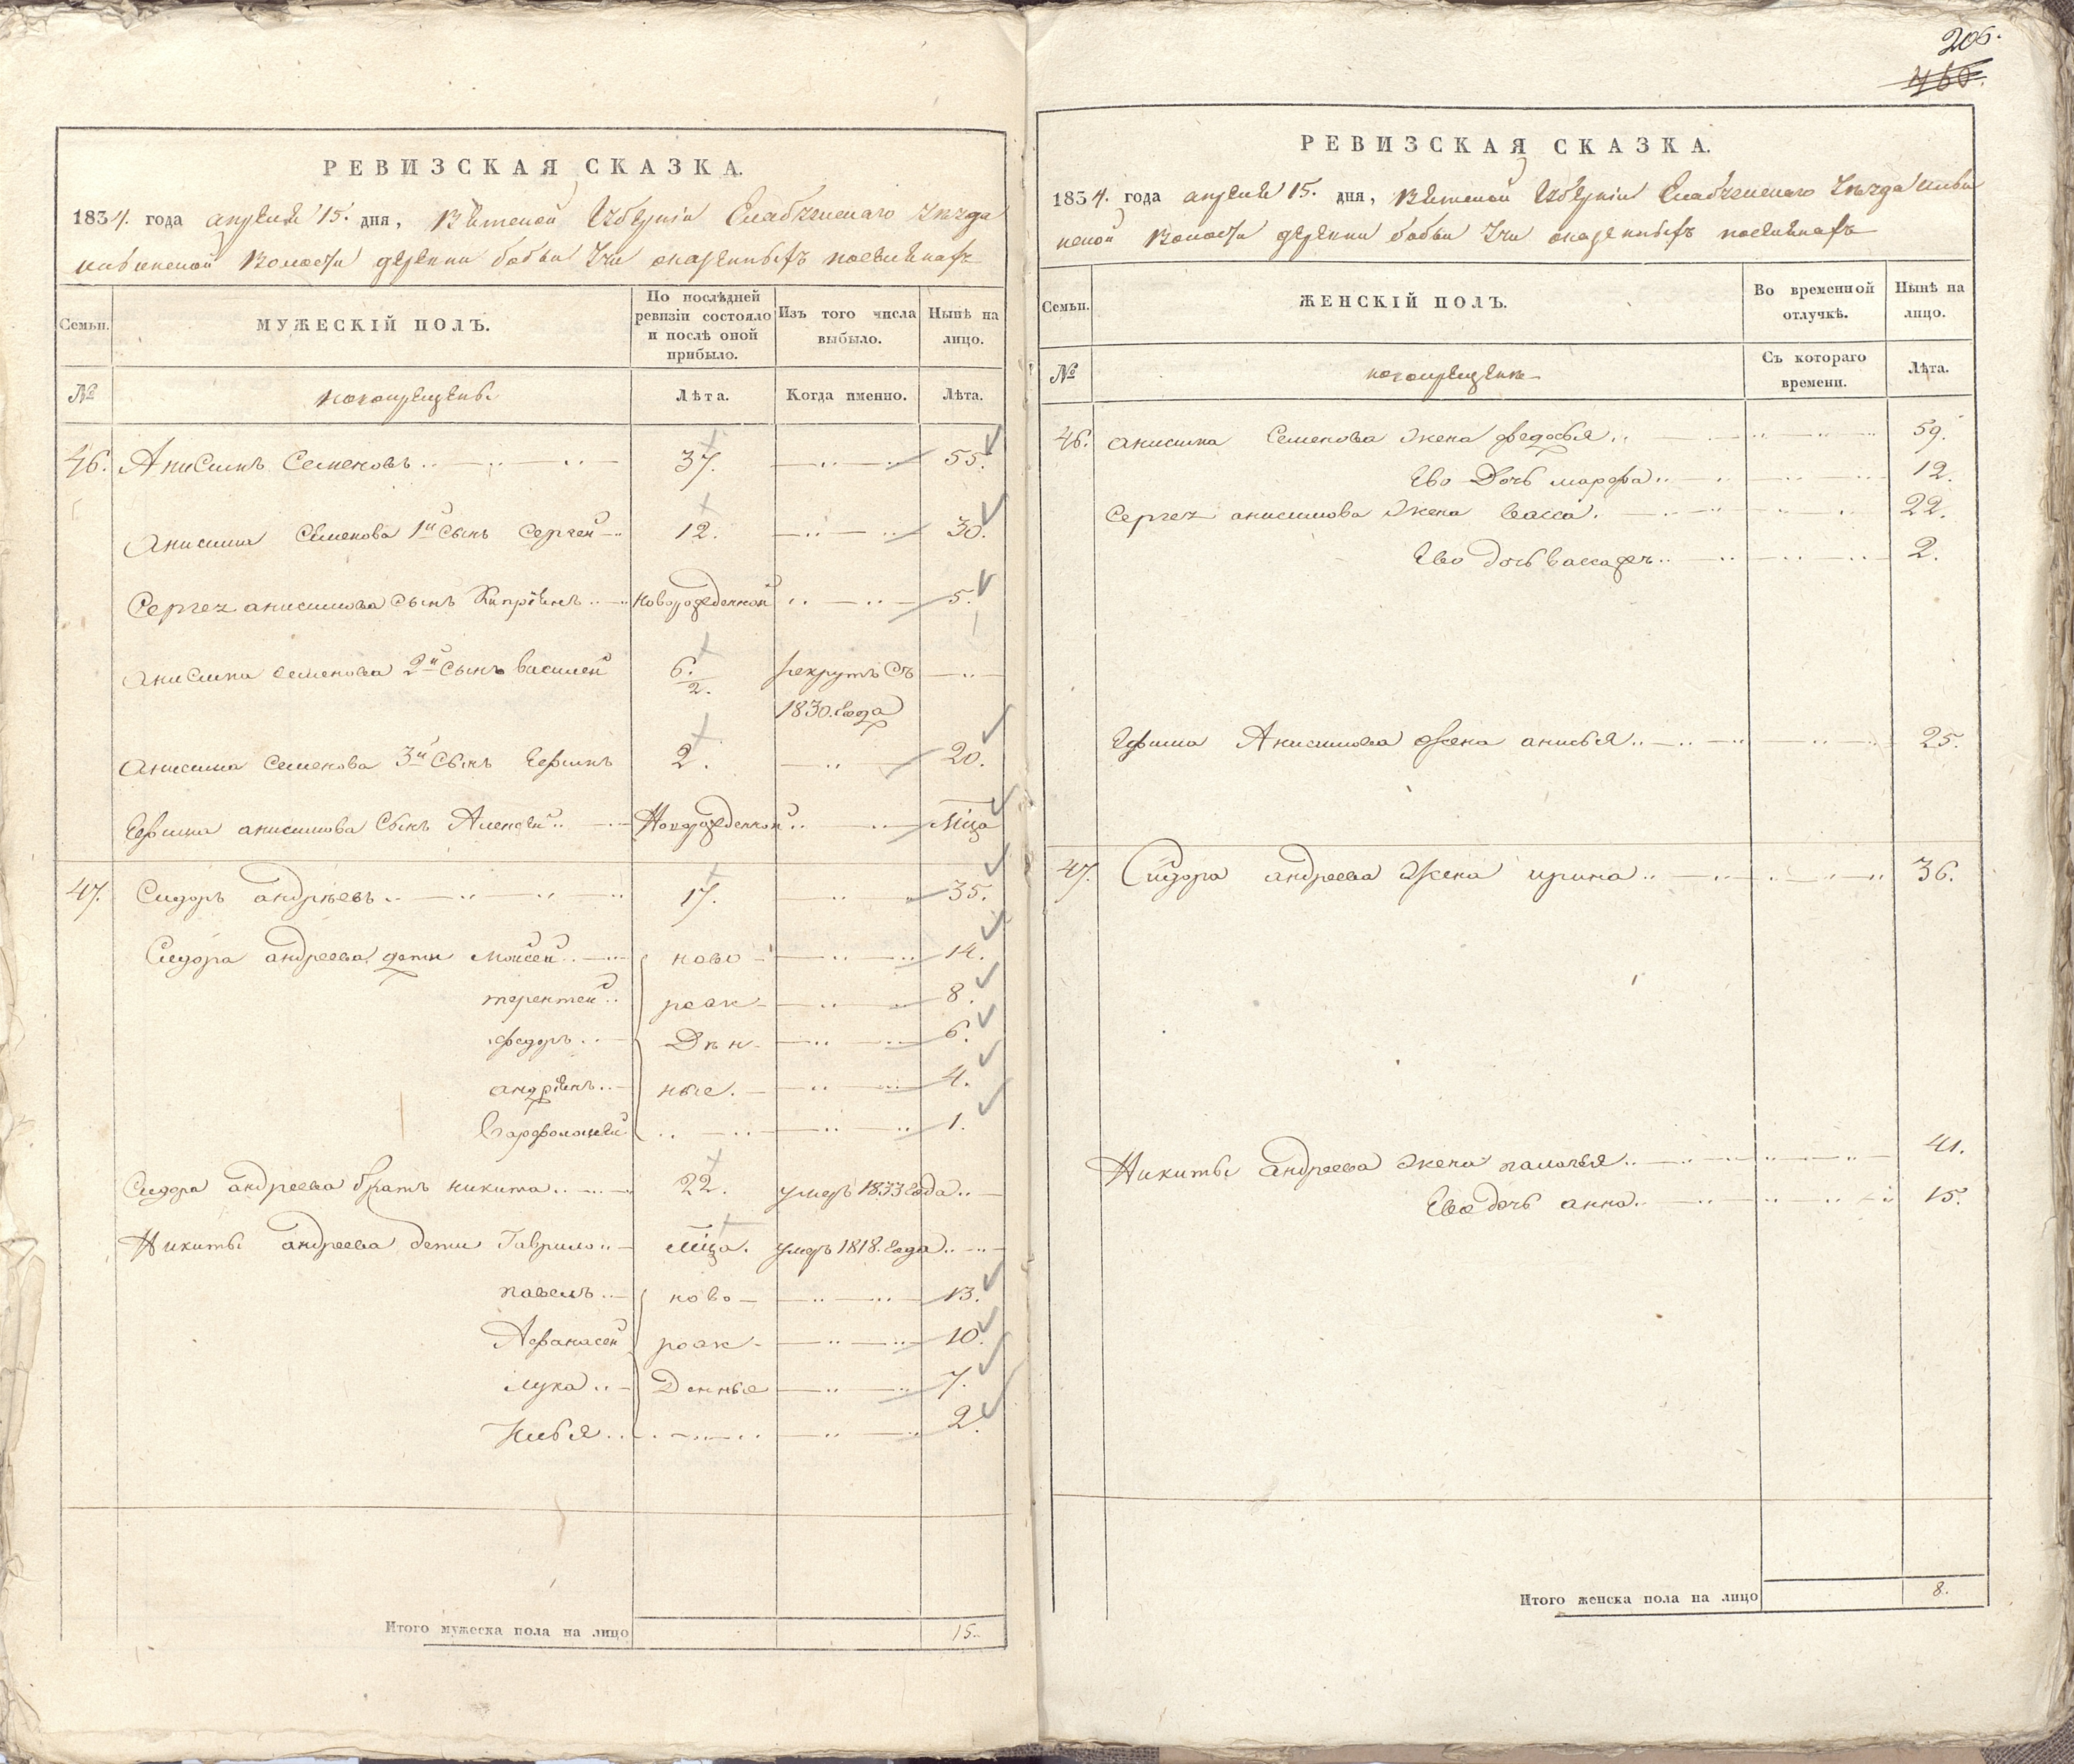 206.
460.
РЕВИЗСКАЯ СКАЗКА.
1834. года апреля 15. дня, Вятской Губерніи Елабужскаго Уезда
волости деревни бобьи Учи
Семьи. МУЖЕСКІЙ ПОЛЪ. По послѣдней ревизіи состояло и послѣ оной прибыло. Изъ того числа выбыло. Нынѣ на лицо.
№ новокрещены Лѣта. Когда именно. Лѣта.
46. Анисимъ Семеновъ 37. 55.
Анисима Семенова 1й сынъ Сергей 12. 30.
Сергея анисимова сынъ Кипріянъ новорожденной 5.
Анисима семенова 2й сынъ василей 6. 2. рекрутъ съ
1830. года
Анисима семенова 3й сынъ Ефимъ 2. 20.
Ефима анисимова сынъ Алексей Новорожденной Мца
47. Сидоръ андреевъ 17. 35.
Сидора андреева дети Мойсей ново 14.
терентей рож 8.
федоръ ден 6.
андріянъ ные. 4.
Варфоломей 1.
Сидора андреева братъ никита 22. умеръ 1833 года
Никиты андреева дети Гаврило мца. умеръ 1818. года
павелъ ново 13.
Афанасей рож 10.
лука Денные 7.
Илья 2.
Итого мужеска пола на лицо 15.
РЕВИЗСКАЯ СКАЗКА.
1834. года апреля 15. дня, Вятской Губерніи Елабужскаго Уезда
волости деревни бобьи Учи
Семьи. ЖЕНСКІЙ ПОЛЪ. Во временной отлучкѣ. Нынѣ на лицо.
№ новокрещены Съ котораго времени. Лѣта.
46. анисима Семенова жена федосья 59.
Ево Дочь марфа 12.
Сергея анисимова жена васса. 22.
Ево дочь 2.
Ефима Анисимова жена анисья 25.
47. Сидора андреева жена ирина 36.
Никиты андреева жена палагья 41.
Ево дочь анна 15.
Итого женска пола на лицо 8.